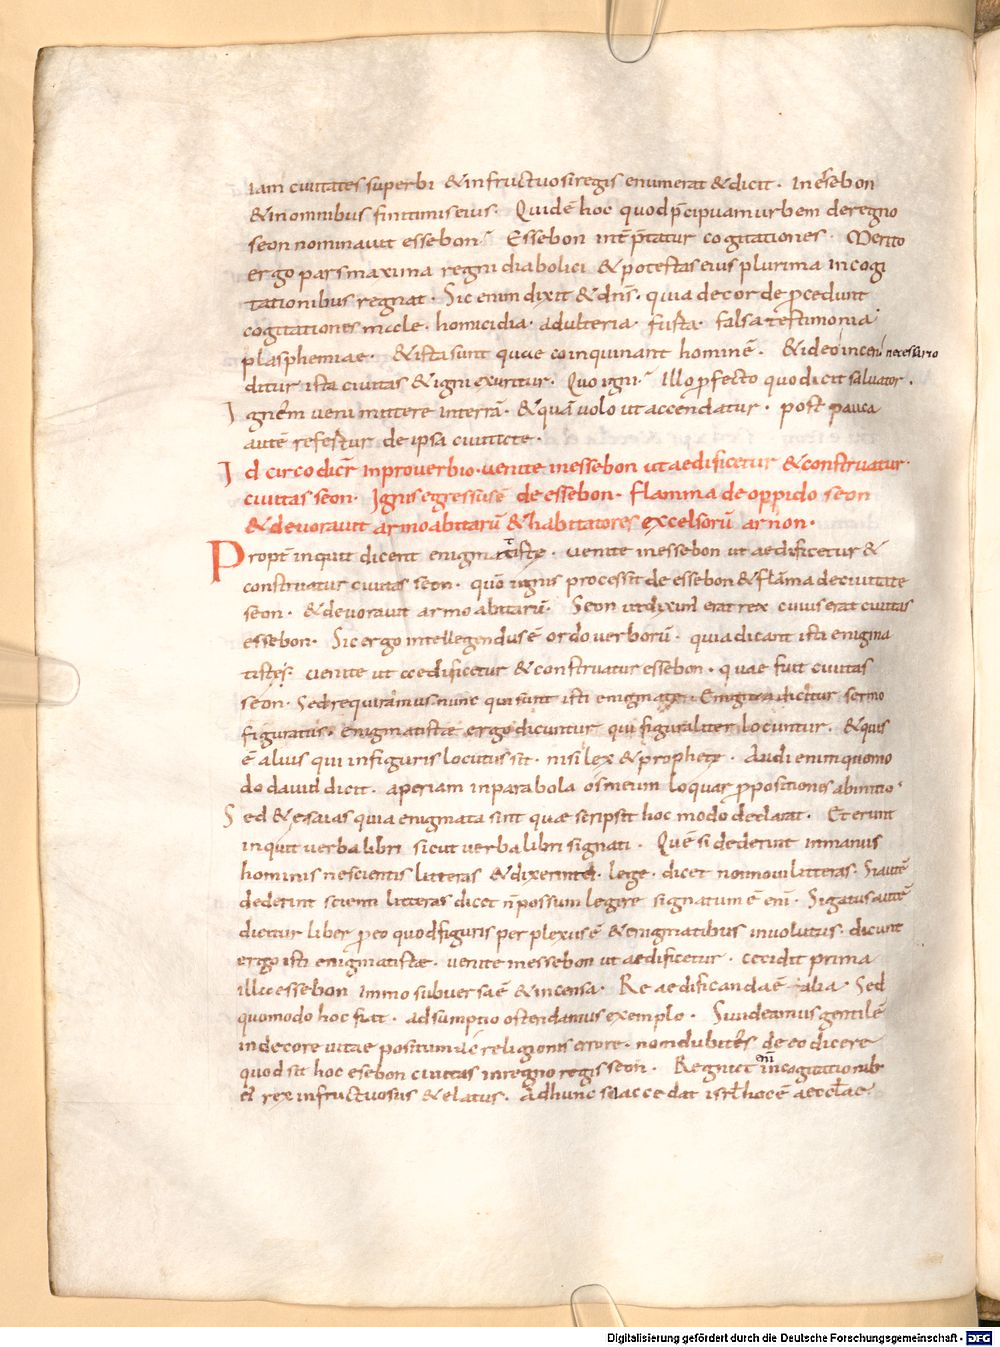 iam ciuitates superbi & infructuosi regis enumerat & dicit· In esebon
& in omnibus finitimis eius· Quid ē hoc quod p̄cipuam urbem de regno
seon nominauit essebon? Essebon int̄p̄tatur cogitationes· Merito
ergo pars maxima regni diabolici & potestas eius plurima in cogi
tationibus regnat· Sic enim dixit & dn̄s· quia de corde ꝓcedunt
cogitationes male· homicidia· adulteria· furta· falsa testimonia·
plasphemiae· & ista sunt quae coinquinant hominē· & ideo incen necessario
ditur ista ciuitas & igni exuritur· Quo igni? Illo ꝓfecto quo dicit saluator·
Ignem ueni mittere in terrā· & quā uolo ut accendatur· post pauca
autē refertur de ipsa ciuitate·
Idcirco dicr̄ in prouerbio· uenite in essebon ut aedificetur & construatur·
ciuitas seon· Ignis egressus ē de essebon· flamma de oppido seon
& deuorauit ar moabitarū & habitatores excelsorū arnon·
Propt̄ inquit dicent enigmatiste· uenite in essebon ut aedificetur &
construatur ciuitas seon· quō ignis processit de essebon & flāma de ciuitate
seon· & deuorauit ar moabitarū· Seon ut diximꝰ erat rex cuius erat ciuitas
essebon· Sic ergo intellegendus ē ordo uerborū· quia dicant isti enigma
tistes· uenite ut aedificetur & construatur essebon· quae fuit ciuitas
seon· Sed requiramus nunc qui sunt isti enigmate· Enigma dicitur sermo
figuratus· enigmatistae ergo dicuntur qui figuraliter locuntur· & quis
ē alius qui in figuris locutus sit· nisi lex & prophete· Audi enim quomo
do dauid dicit· aperiam in parabola os meum loquar ꝓpositiones ab initio·
Sed & esaias quia enigmata sint quae scripsit hoc modo declarat· Et erunt
inquit uerba libri sicut uerba libri signati· Quē si dederint in manus
hominis nescientis litteras & dixerint ei· lege· dicet non noui litteras· Si autē
dederint scienti litteras dicet n̄ possum legere signatum ē eni· Sigatus autē
dicitur liber ꝓ eo quod figuris perplexus ē & enigmatibus inuolutus· dicunt
ergo isti enigmatistae· uenite in essebon ut aedificetur· cecidit prima
illa essebon immo subuersa ē & incensa· Re aedificanda ē alia· Sed
quomodo hoc fiat· adsumptio ostendamus exemplo· Si uideamus gentilē
in decore uitae positum & religionis errore· non dubites de eo dicere
quod sit hoc esebon ciuitas in regno regis seon· Regnat enī in cogitationibꝰ
ei rex infructuosus & elatus· Ad hunc si accedat isrl̄ hoc ē aeccl̄ae
Digitalisierung gefördert durch die Deutsche Forschungsgemeinschaft - DFG